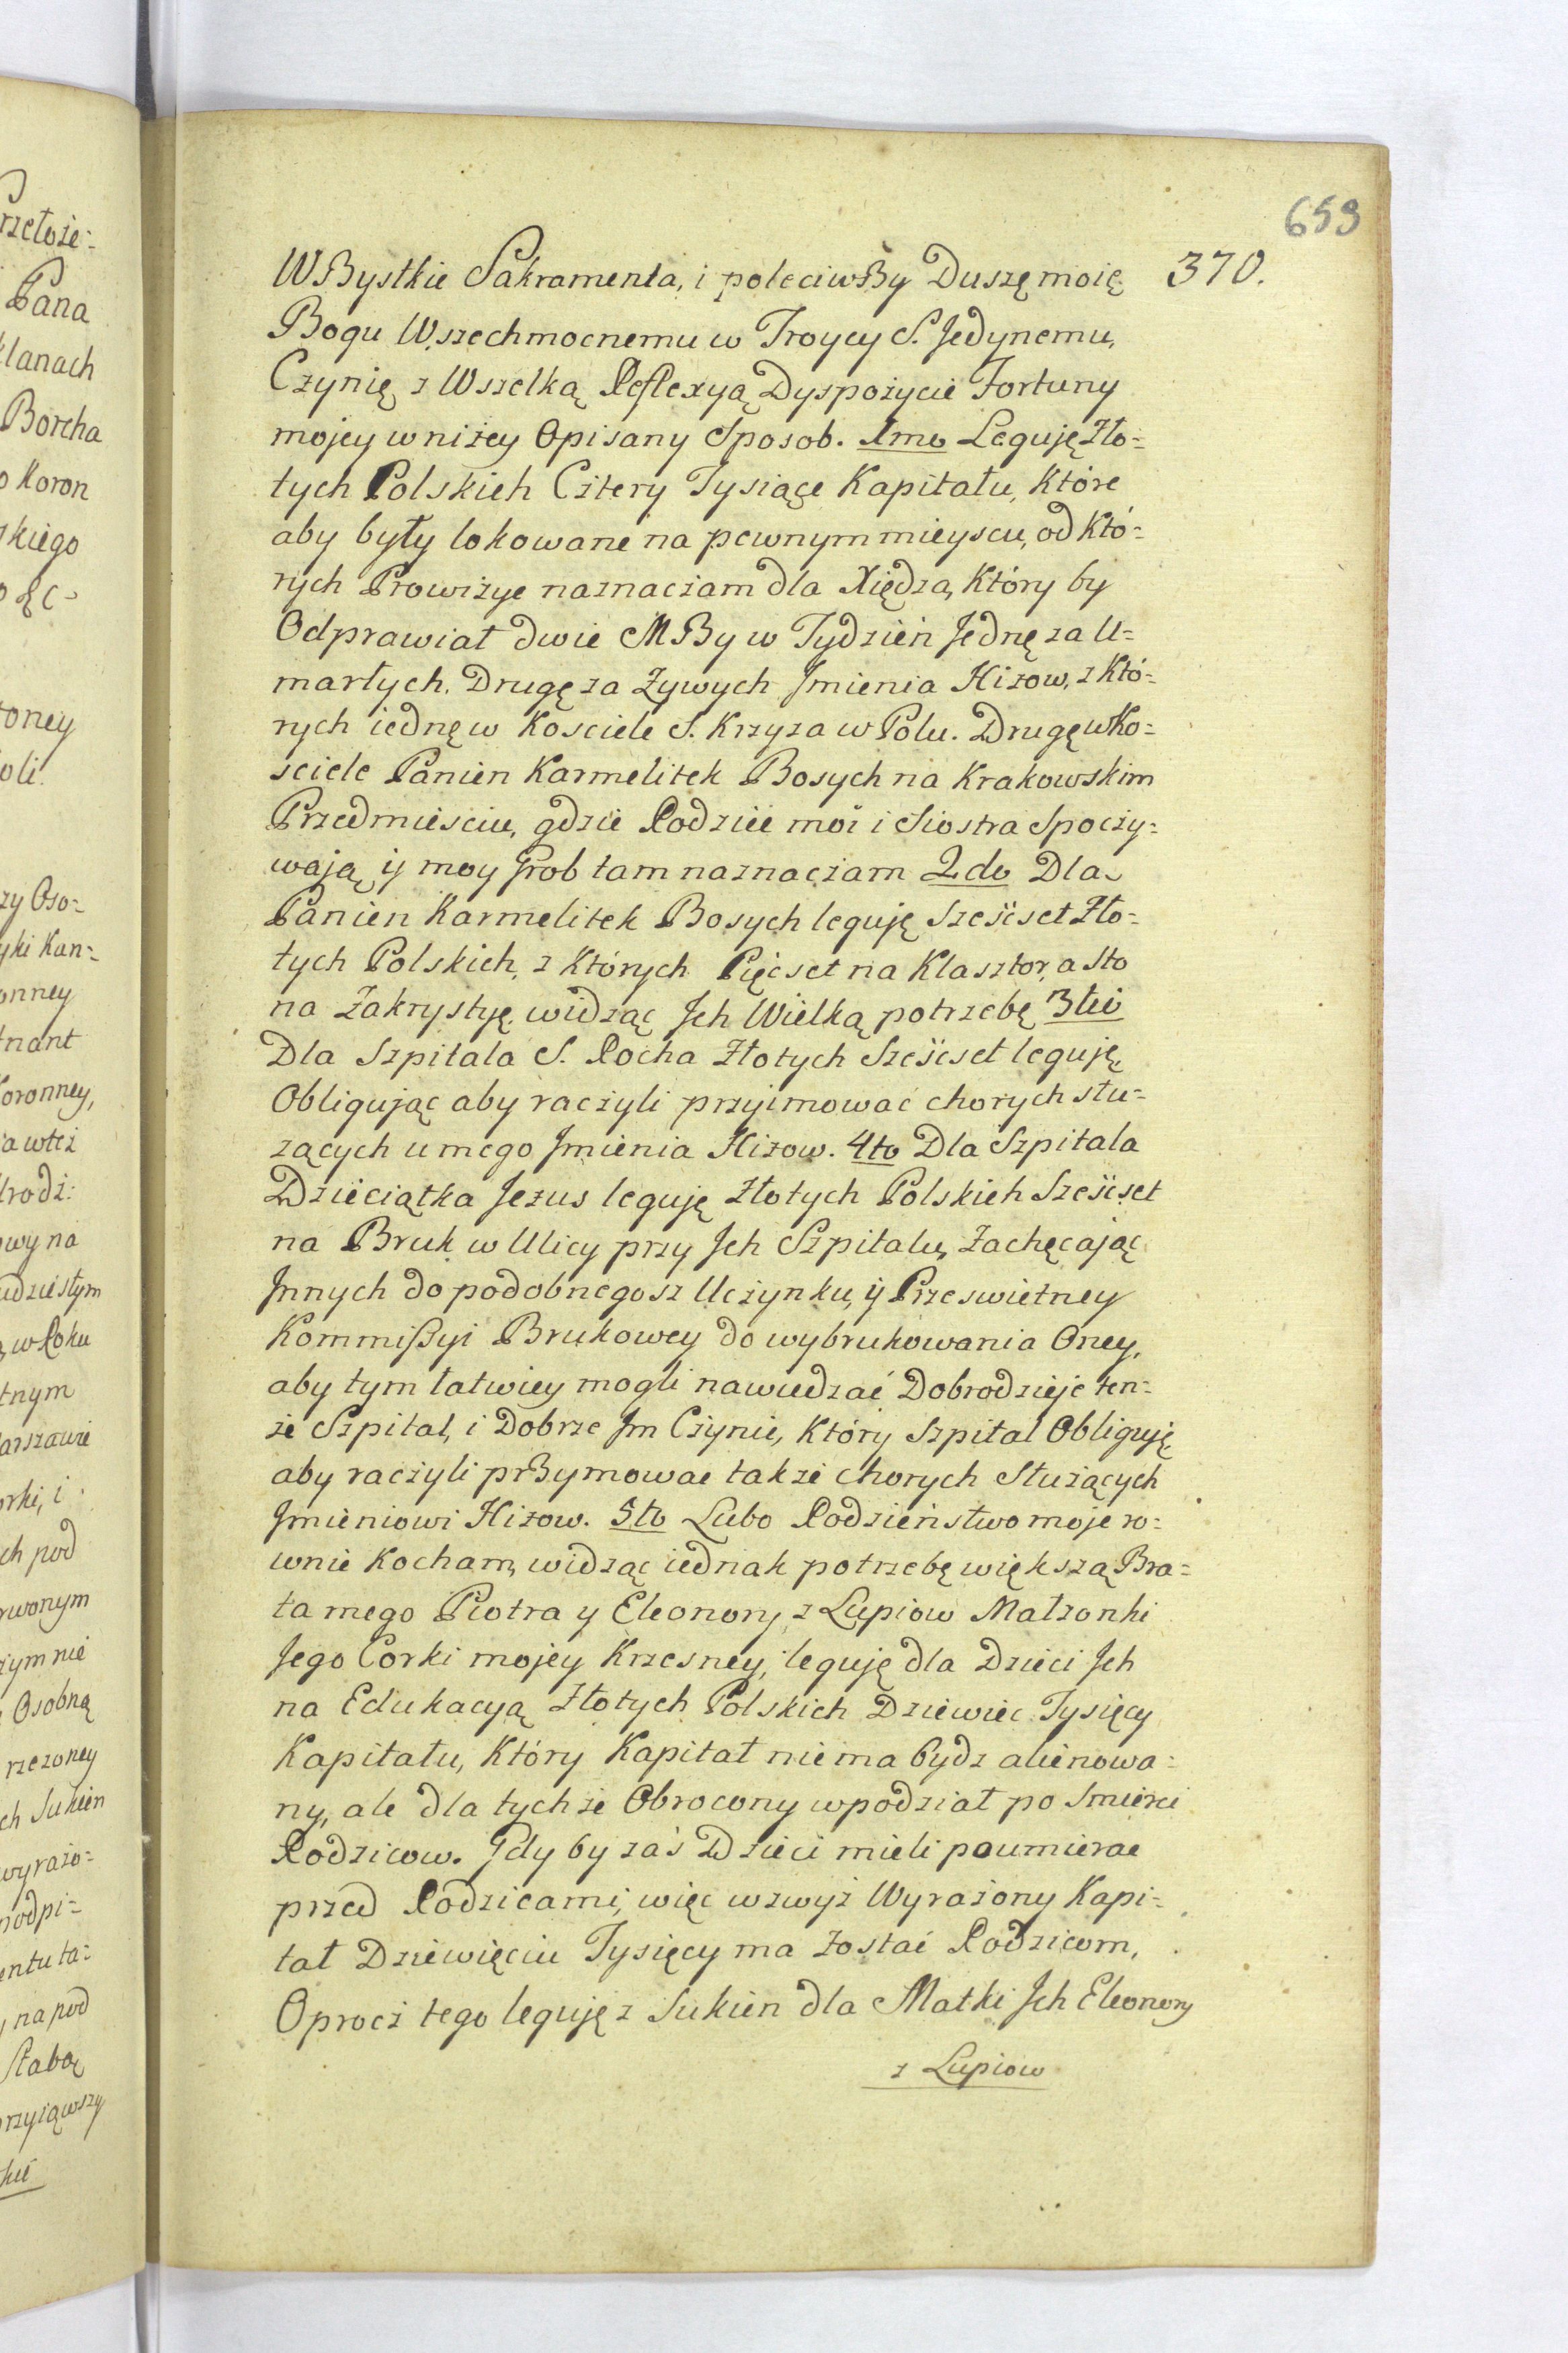 659
370.
Wßystkie Sakramenta, i poleciwßy Duszę moię
Bogu Wszechmocnemu w Troycy S. Jedynemu,
Czynię z Wszelką Reflexyą Dyspozycie Fortuny
mojey w niżey Opisany Sposob. 1mo Leguję Zło-
tych Polskich Cztery Tysiące Kapitału, Które
aby były lokowane na pewnym mieyscu, od Któ-
rych Prowizye naznaczam dla Xiędza, Który by
Odprawiał dwie Mßy w Tydzień Jednę za U-
marłych. Drugę za Żywych Jmienia Hizow, z Któ-
rych iednę w Kosciele S. Krzyza w Polu. Drugę w Ko-
sciele Panien Karmelitek Bosych na Krakowskim
Przedmiesciu, gdzie Rodzice moi i Siostra Spoczy-
wają ij moy Grob tam naznaczam 2do Dla
Panien Karmelitek Bosych leguję Sześcset Zło-
tych Polskich, z Których Pięcset na Klasztor, a Sto
na Zakrystyę, widząc Jch Wielką potrzebę 3tio
Dla Szpitala S. Rocha Złotych Sześcset leguję
Obligując aby raczyli przyimować chorych słu-
zących u mego Jmienia Hizow. 4to Dla Szpitala
Dzieciątka Jezus leguję Złotych Polskich Sześcset
na Bruk w Ulicy przy Jch Szpitalu, Zachęcając
Jnnych do podobnegosz Uczynku, ij Przeswietney
Kommißyi Brukowey do wybrukowania Oney,
aby tym łatwiey mogli nawiedzać Dobrodzieje ten-
że Szpital, i Dobrze Jm Czynić, Który Szpital Obliguję
aby raczyli prßymowac takze chorych Służących
Jmieniowi Hizow. 5to Lubo Rodzieństwo moje ro-
wnie Kocham, widząc iednak potrzebę większą Bra-
ta mego Piotra y Eleonory z Lupiow Małzonki
Jego Corki mojey Krzesney, leguję dla Dzieci Jch
na Edukacyą Złotych Polskich Dziewiec Tysięcy
Kapitału, Który Kapitał nie ma bydz alienowa-
ny, ale dla tychże Obrocony w podział po Smierci
Rodzicow. Gdy by zaś Dzieci mieli poumierac
przed Rodzicami, więc wzwyż Wyrażony Kapi-
tał Dziewięciu Tysięcy ma Zostać Rodzicom,
Oprocz tego leguję z Sukien dla Matki Jch Eleonory
z Lupiow